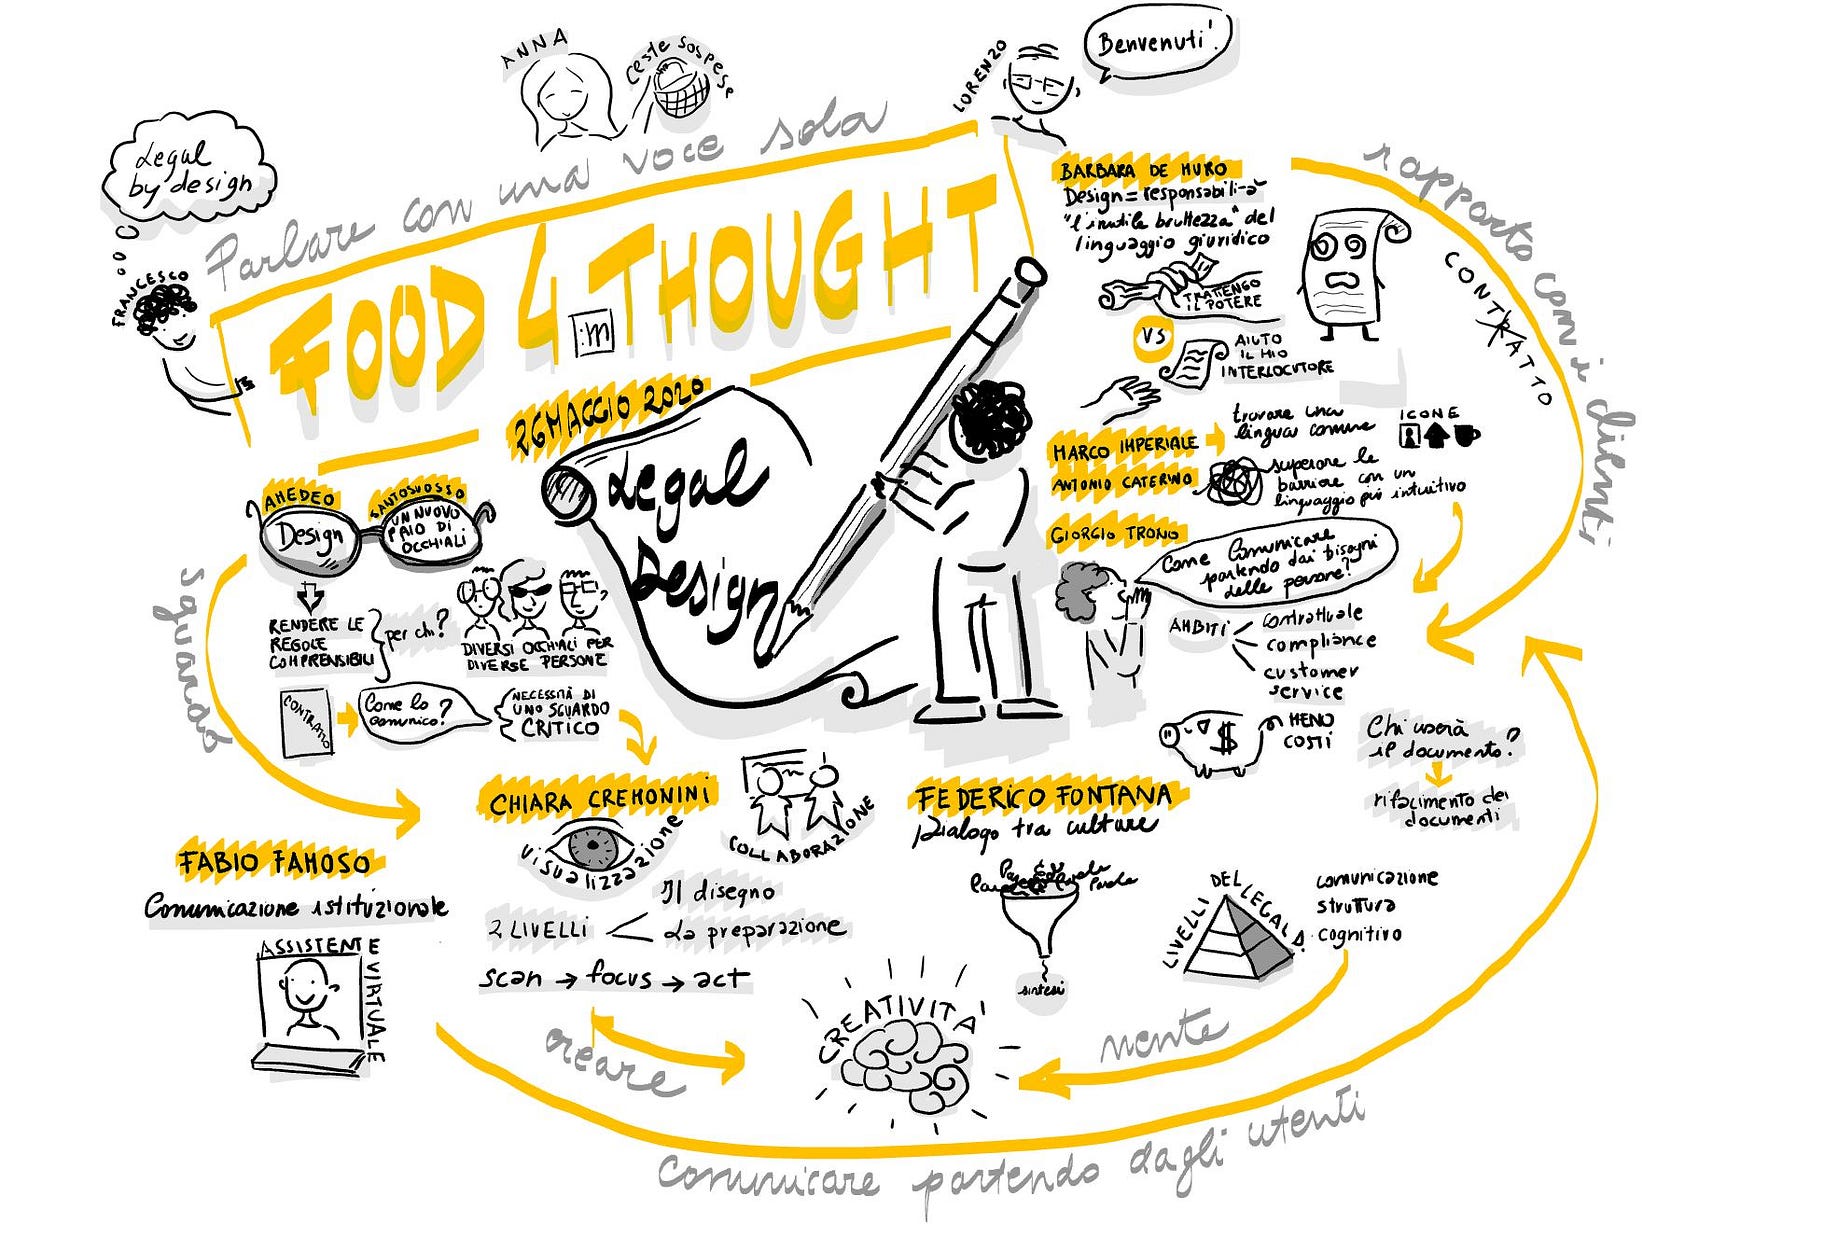 ANNA
Ceste Sospese
LORENZO
Benvenuti!
Legal
by design
FRANCESCO
Parlare con una voce sola
FOOD 4 THOUGHT
:m
26 MAGGIO 2020
Legal
Design
BARBARA DE MURO
Design = responsabili-à
"l'inutile bruttezza" del
linguaggio giuridico
TRATTENGO
IL POTERE
VS
AIUTO
IL MIO
INTERLOCUTORE
CONTRATTO
rapporto con i clienti
MARCO IMPERIALE
ANTONIO CATERINO
trovare una
lingua comune
ICONE
superare le
barriere con un
linguaggio più intuitivo
GIORGIO TRONO
Come Comunicare
partendo dai bisogni
delle persone?
AMBITI
contrattuale
compliance
customer
service
MENO
COSTI
Chi userà
il documento?
rifacimento dei
documenti
AMEDEO
SANTOSUOSSO
Design
UN NUOVO
PAIO DI
OCCHIALI
RENDERE LE
REGOLE
COMPRENSIBILI
per chi?
DIVERSI OCCHIALI PER
DIVERSE PERSONE
CONTRATTO
Come lo
comunico?
NECESSITÀ DI
UNO SGUARDO
CRITICO
sguardo
CHIARA CREMONINI
visualizzazione
COLLABORAZIONE
2 LIVELLI
Il disegno
La preparazione
scan → focus → act
creare
FABIO FAMOSO
Comunicazione istituzionale
ASSISTENTE
VIRTUALE
FEDERICO FONTANA
Dialogo tra culture
Parole
sintesi
LIVELLI
DEL
LEGAL D.
comunicazione
struttura
cognitivo
CREATIVITA'
mente
Comunicare partendo dagli utenti